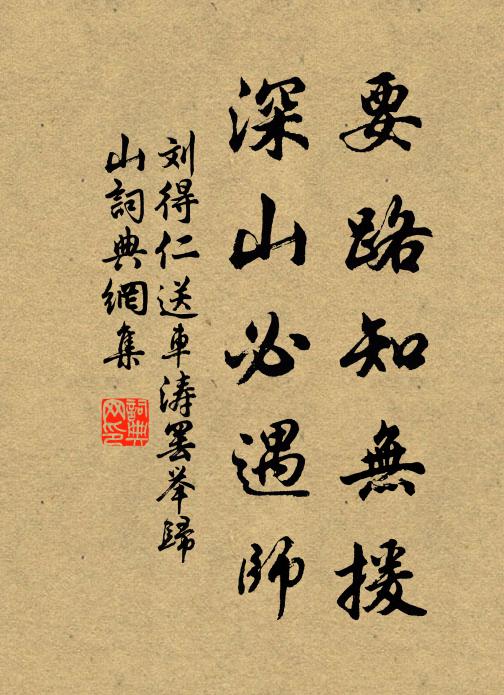 要路知無援
深山必遇師
刘得仁送車涛罢举歸
山詞典網集
詞典网印